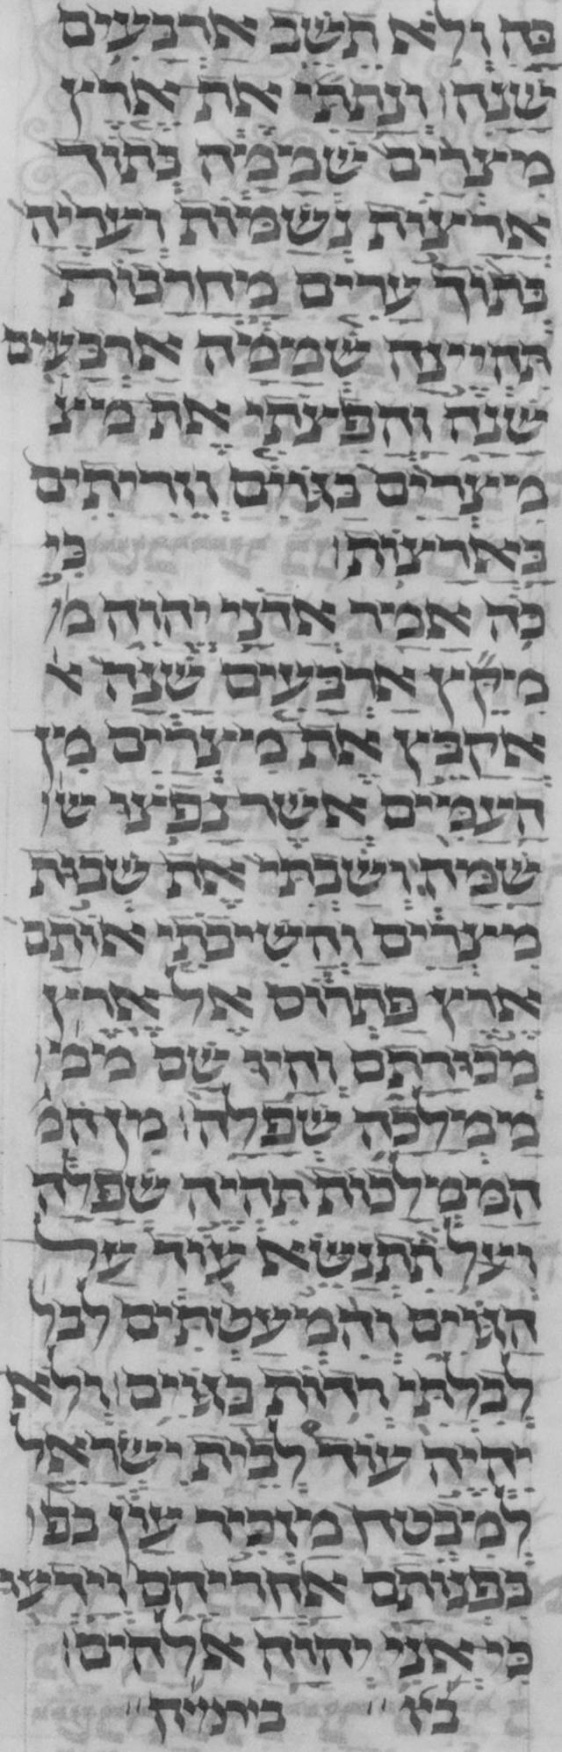 בה ולא תשב ארבעים
שנה ונתתי את ארץ
מצרים שממה בתוך
ארצות נשמות ועריה
בתוך ערים מחרבות
תהיינה שממה ארבעים
שנה והפצתי את מיצ
מיצרים בגוים וזריתים
בארצות כי
כה אמר אדני יהוה מ
מקץ ארבעים שנה א
אקבץ את מיצרים מן
העמים אשר נפצו ש
שמה ושבתי את שבות
מיצרים והשיבתי אותם
ארץ פתרוס אל ארץ
מכורתם והיו שם ממ
ממלכה שפלה מן המ
הממלכות תהיה שפלה
ועל תתנשא עוד על
הגוים והמעטתים לבל
לבלתי רדות בגוים ולא
יהיה עוד לבית ישראל
למבטח מזכיר עון בפ
בפנותם אחריהם וידעו
כי אני יהוה אלהים
בירמיה